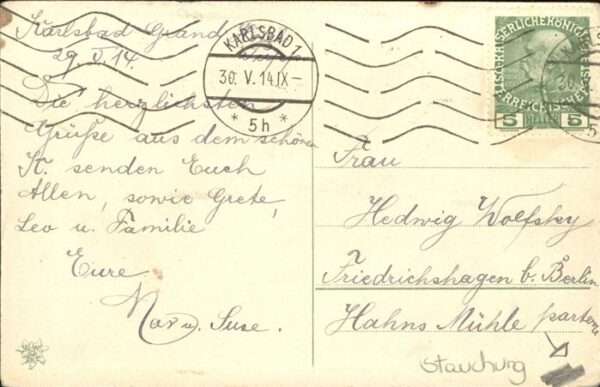 Karlsbad Grand
29.V.14.
Die herzlichsten
Grüße aus dem schönen
K. senden Euch
Allen, sowie Grete,
Leo u. Familie
Eure
Max u. Suse.
KARLSBAD 1
30. V. 14 IX-
* 5h *
5 HELLER 5
Frau
Hedwig Wolfsky
Friedrichshagen b. Berlin
Hahns Mühle parterre
Stauchung